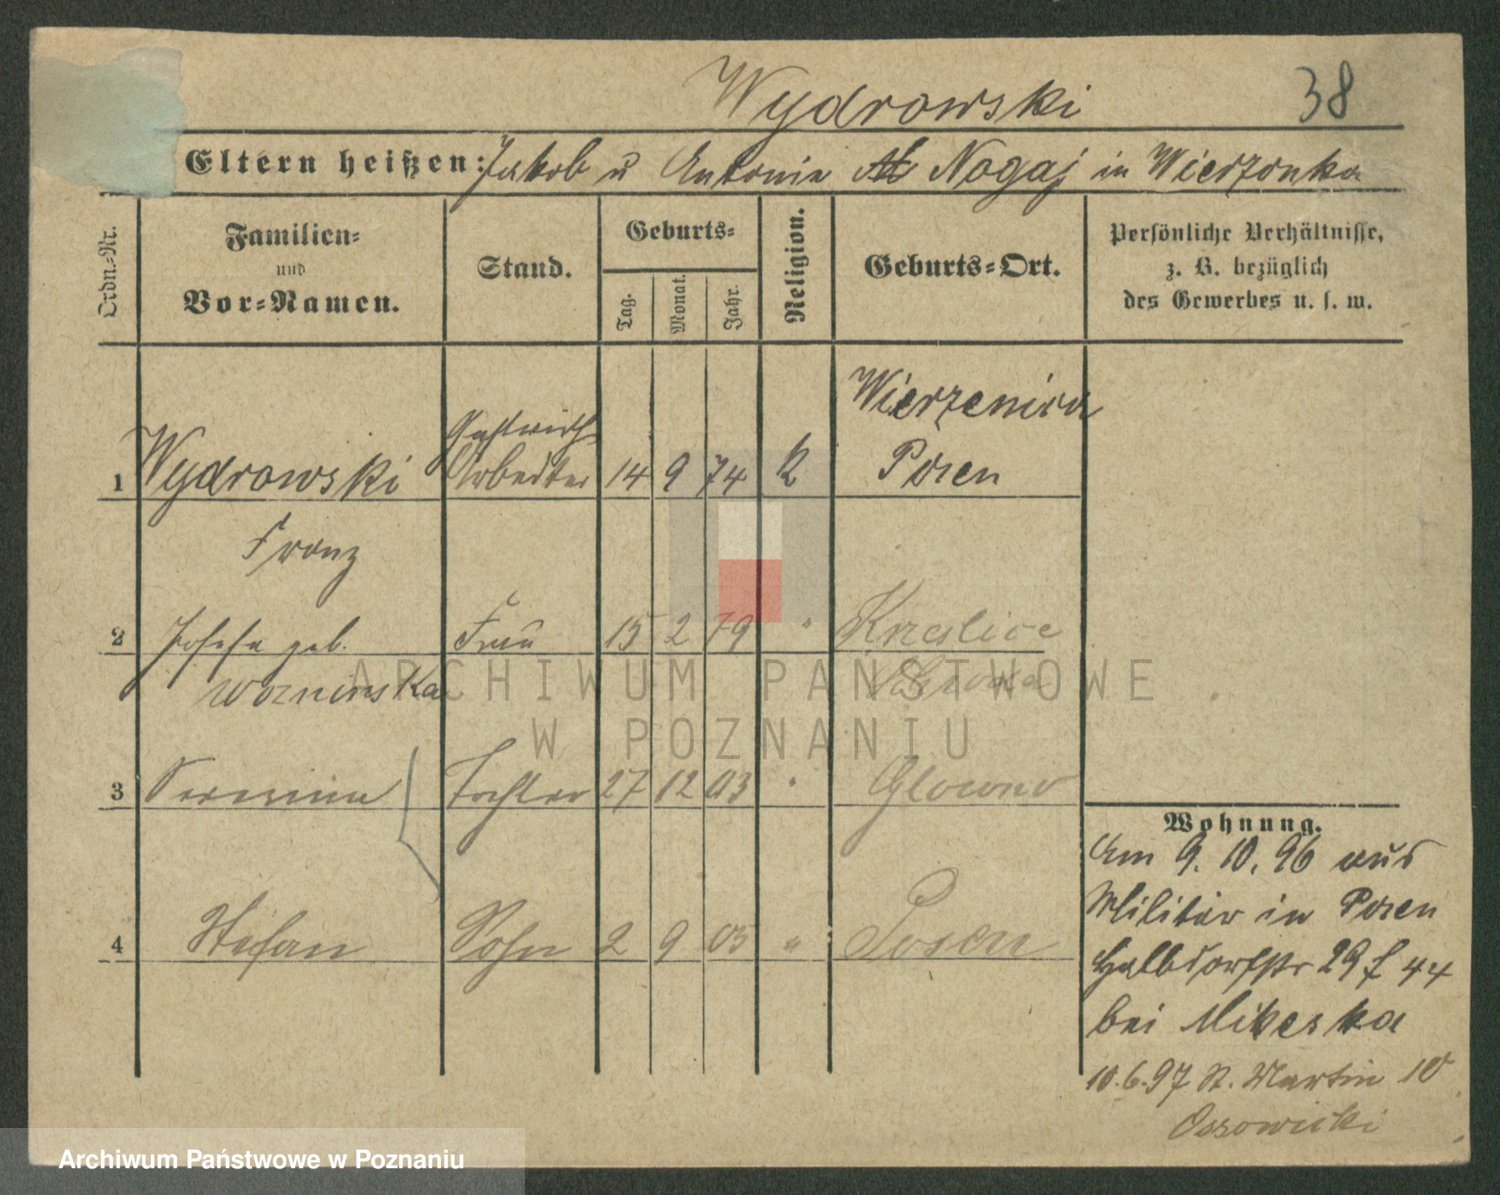 Wydrowski 38
Eltern heißen: Jakob u Antonie Nogaj in Wierzonka
Ordn.-Nr.
Familien-
und
Vor-Namen.
Stand.
Geburts-
Tag.
Monat.
Jahr.
Religion.
Geburts-Ort.
Persönliche Verhältnisse,
z. B. bezüglich
des Gewerbes u. s. w.
Gastwirth Wierzenica
1 Wydrowski Arbeiter 14 9 74 K Posen
Franz
2 Josefa geb. Frau 15 2 79 " Krzeslice
Wozninska
3 Tochter 27 12 03 " Glowno
4 Stefan Sohn 2 9 05 " Posen
Wohnung.
Am 9. 10. 96 aus
Militär in Posen
Halbdorfstr 29
bei Mikeska
10.6.97 St. Martin 10
Ossowicki
ARCHIWUM PAŃSTWOWE
W POZNANIU
Archiwum Państwowe w Poznaniu